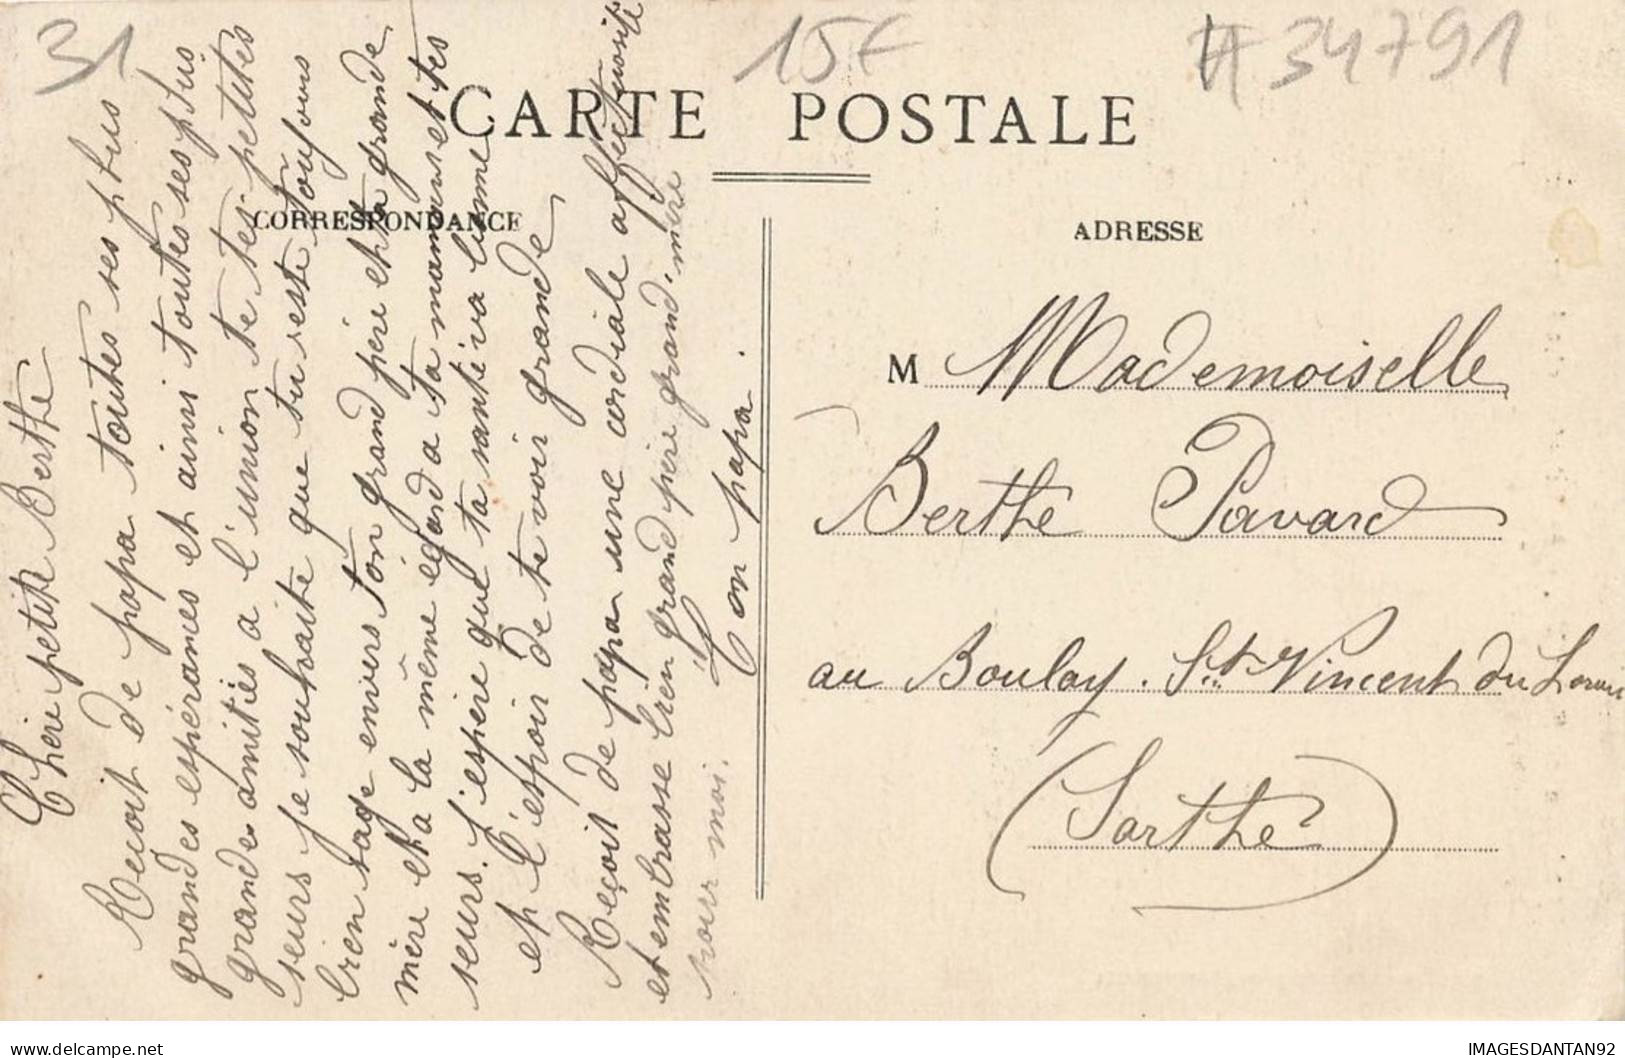 31
15F
#34791
CARTE POSTALE
CORRESPONDANCE
ADRESSE
Chère petite Berthe
Recoit de papa toutes ses plus
grandes espérances et ainsi toutes ses plus
grandes amitiés a l'union te tes petites
seurs je souhaite que tu reste toujours
bien sage envers ton grand père et ta grande
mère et a la même egard a ta maman et tes
seurs. j'espère que ta santé va bonne
et l'espoir de te voir grande
Reçoit de papa une cordiale affectuosité
et embrasse bien grand père grand'mère
pour moi.
Ton papa.
M Mademoiselle
Berthe Pavard
au Boulay. St Vincent du Lorouer
(Sarthe)
delcampe.net
IMAGESDANTAN92